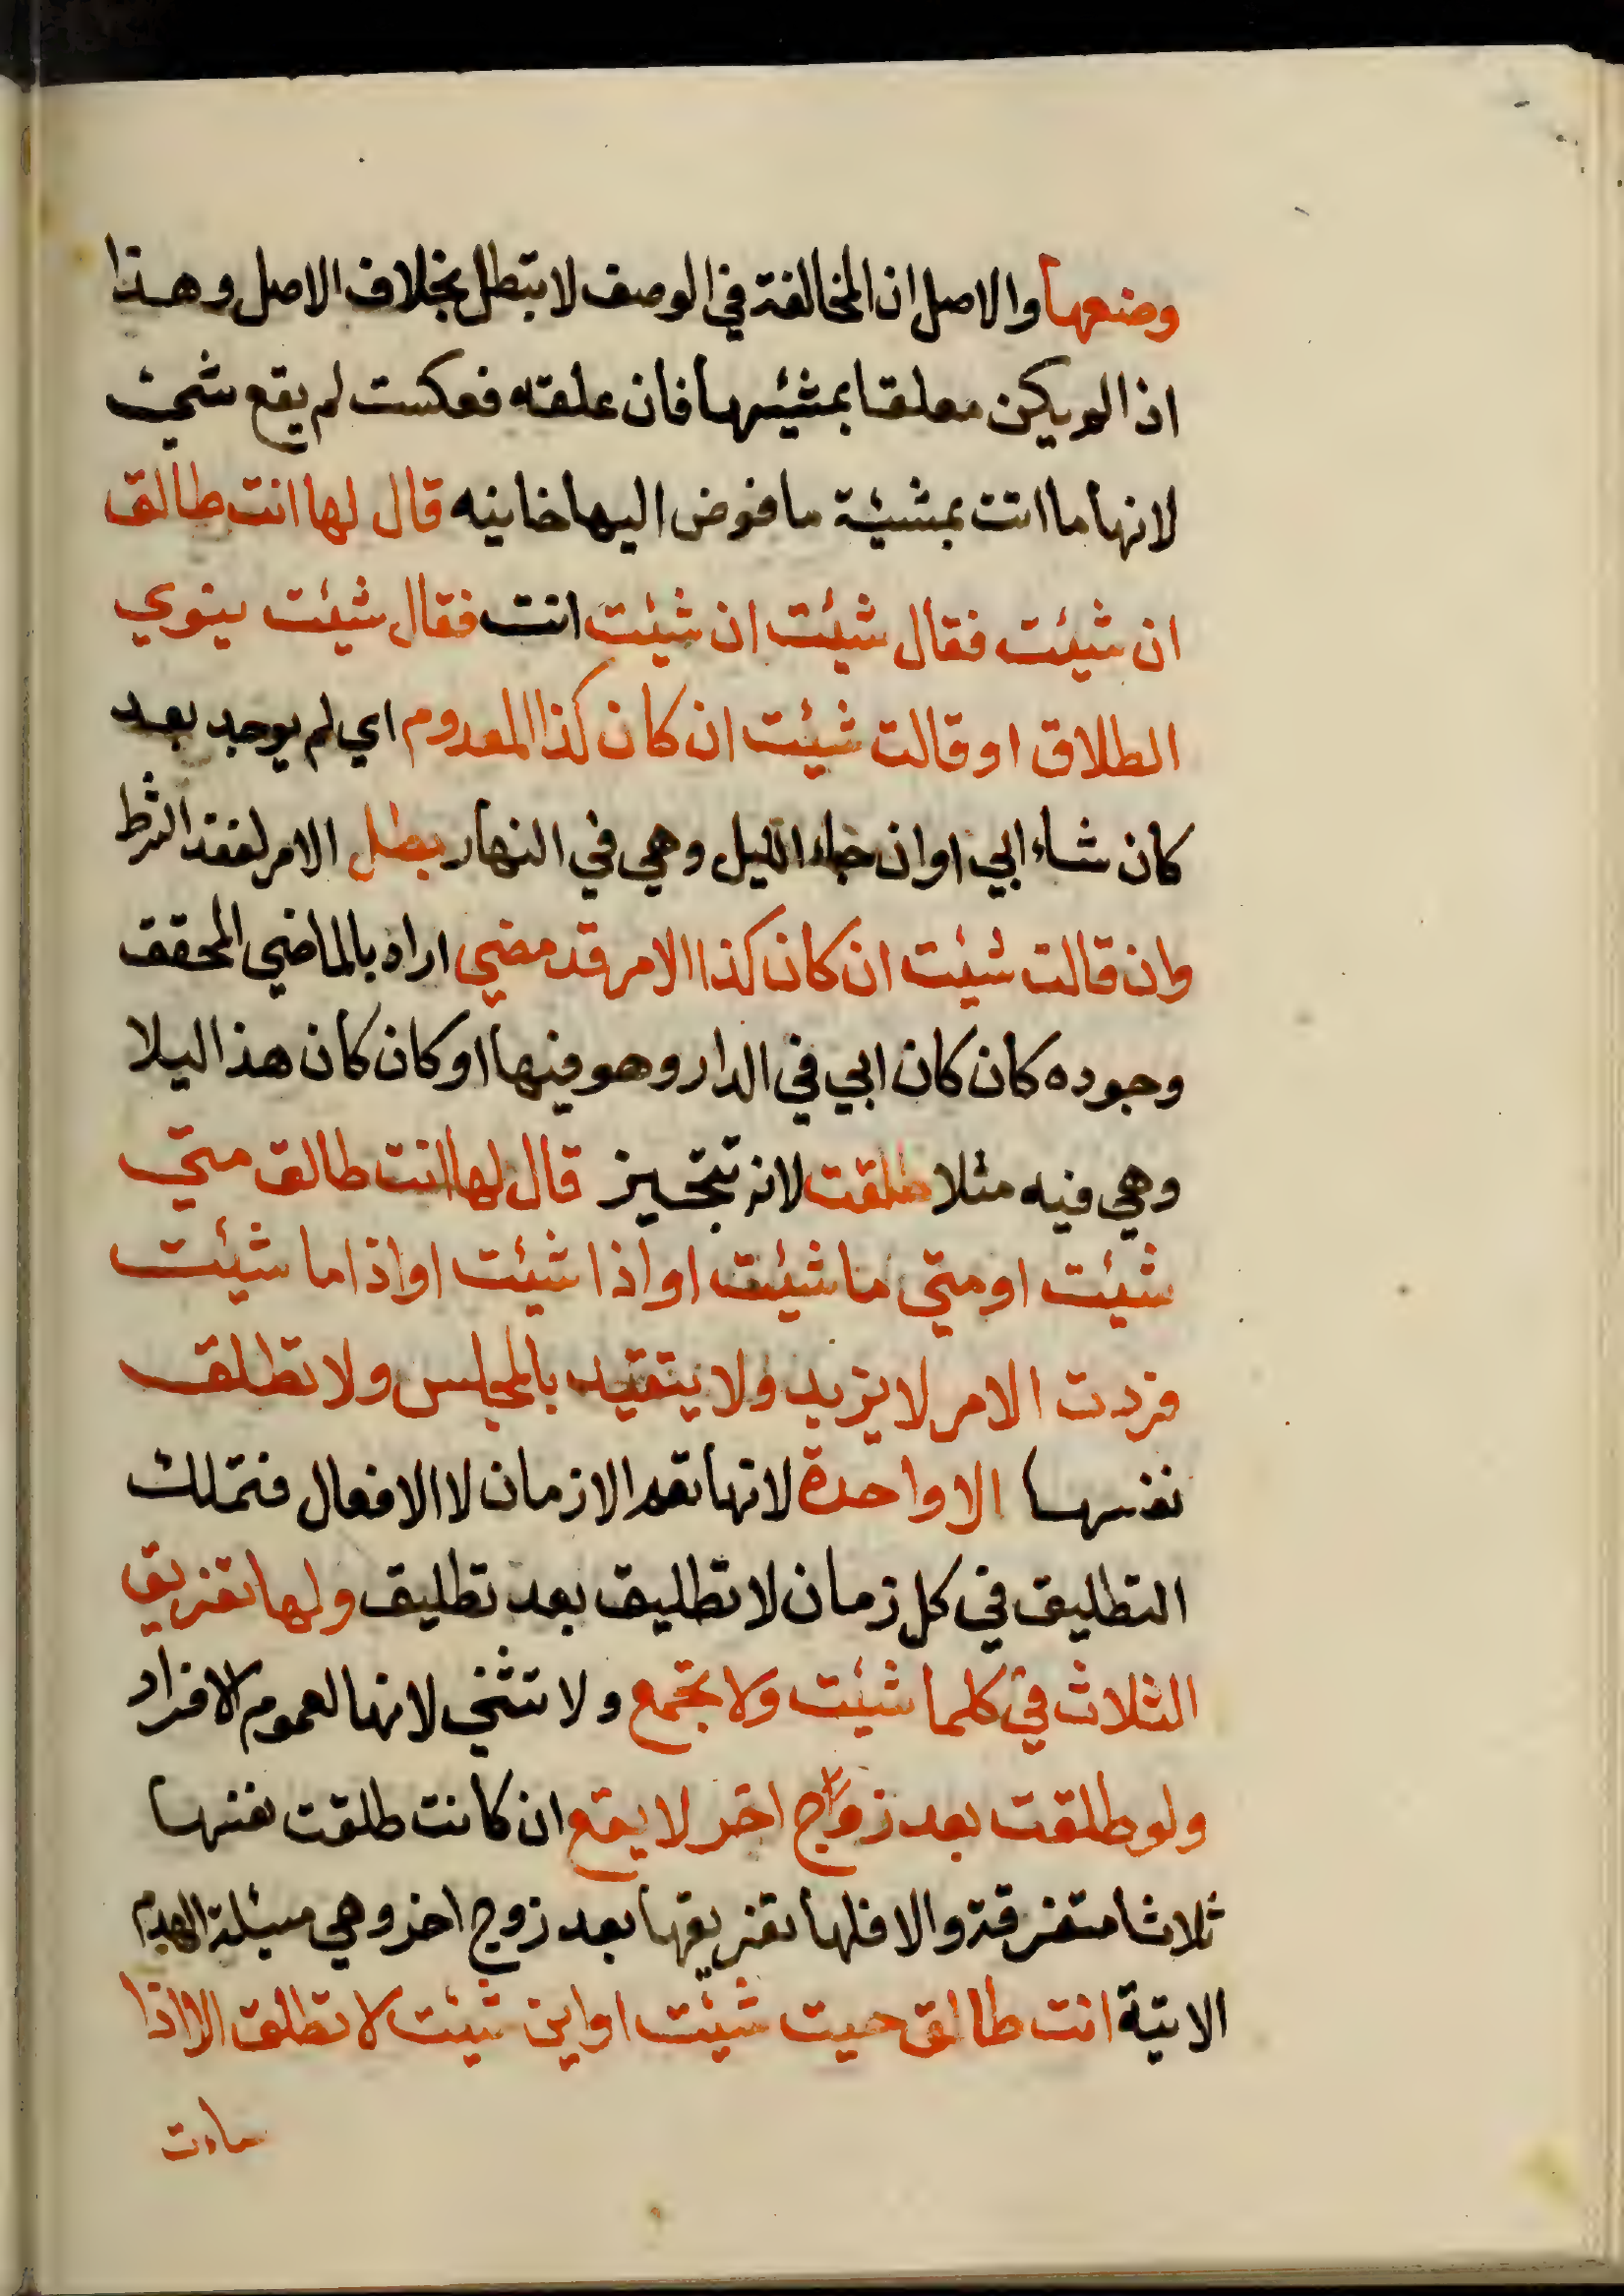 وصنعها والاصل ان المخالفة في الوصف لا تبطل بخلاف الاصل وهذا
اذا لم يكن معلقا بمشيئتها فان علقه فعكست لم يقع شيئ
لانها ما اتت بمشيئة ما فوض اليها خانيه قال لها انت طالق
ان شيئت فقال شيئت ان شيئت انت فقال شيئت ينوي
الطلاق او قالت شيئت ان كان كذا المعدوم اي لم يوجد بعد
كان شاء ابي او ان جاء الليل وهي في النهار بطل الامر لفقد الشرط
وان قالت شيئت ان كان كذا الامر قد مضي اراه بالماضي المحقق
وجوده كان كان ابي في الدار وهو فيها او كان كان هذا ليلا
وهي فيه مثلا طلقت لانه تنجيز قال لها انت طالق متي
شيئت او متي ما شيئت او اذا شيئت او اذا ما شيئت
فردت الامر لا يزيد ولا يتقيد بالمجلس ولا تطلق
نفسها الا واحدة لانها تعم الازمان لا الافعال فتملك
التطليق في كل زمان لا تطليق بعد تطليق ولها تفريق
الثلاث في كلما شيئت ولا تجمع ولا تثني لانها لعموم الافراد
ولو طلقت بعد زوج اخر لا يقع ان كانت طلقت نفسها
ثلاثا متفرقة والا فلها تفريقها بعد زوج اخر وهي مسئلة الهدم
الاتية انت طالق حيت شيئت او اين شيئت لا تطلق الا اذا
ساءت